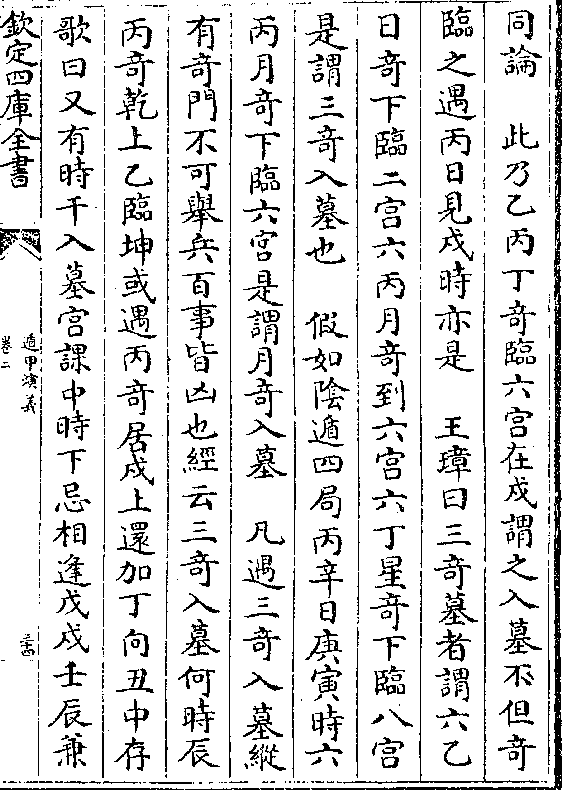 同論　此乃乙丙丁奇臨六宫在戍謂之入墓不但奇
臨之遇丙日見戍時亦是　王璋曰三奇墓者謂六乙
日奇下臨二宫六丙月奇到六宫六丁星奇下臨八宫
是謂三奇入墓也　假如陰遁四局丙辛日庚寅時六
丙月奇下臨六宫是謂月奇入墓　凡遇三奇入墓縱
有奇門不可舉兵百事皆凶也經云三奇入墓何時辰
丙奇乾上乙臨坤或遇丙奇居戍上還加丁向丑中存
歌曰又有時干入墓宫課中時下忌相逢戊戍壬辰兼
欽定四庫全書
遁甲演義
卷二
三四